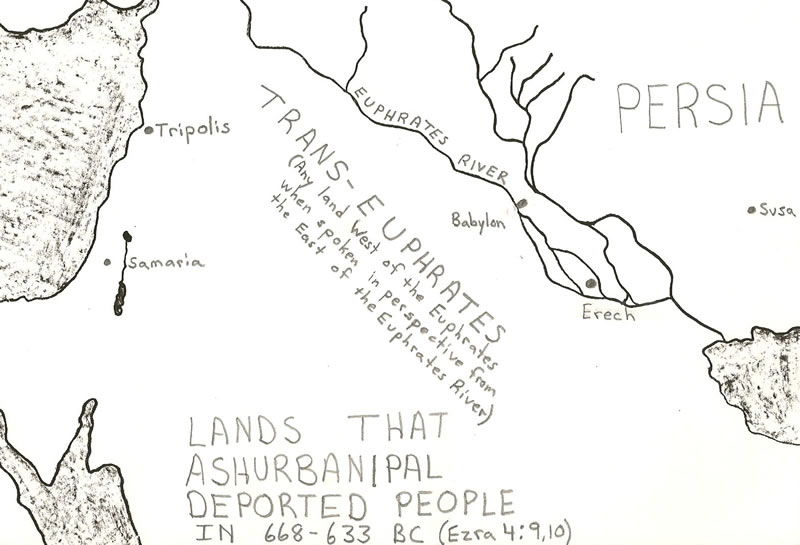 PERSIA
Tripolis
EUPHRATES RIVER
Susa
Babylon
Samaria
Erech
TRANS-EUPHRATES
(Any land West of the Euphrates
when spoken in perspective from
the East of the Euphrates River)
LANDS THAT
ASHURBANIPAL
DEPORTED PEOPLE
IN 668-633 BC (Ezra 4:9,10)